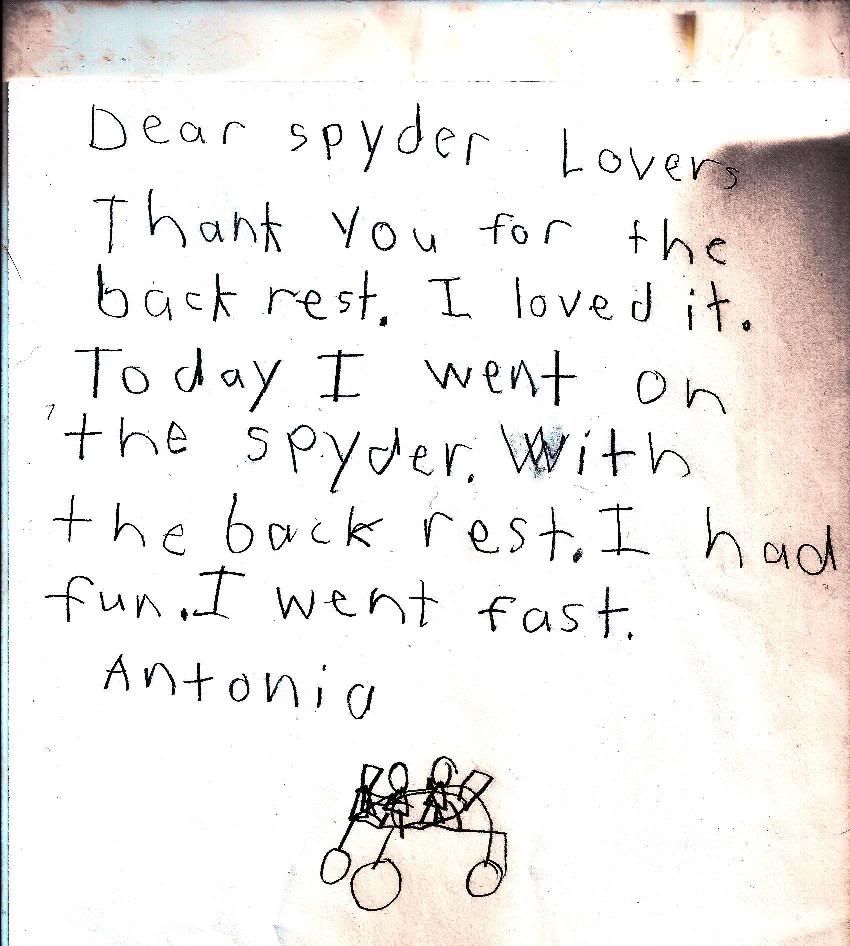 Dear spyder Lovers
Thank You for the
back rest. I loved it.
Today I went on
the spyder. With
the back rest. I had
fun. I went fast.
Antonia